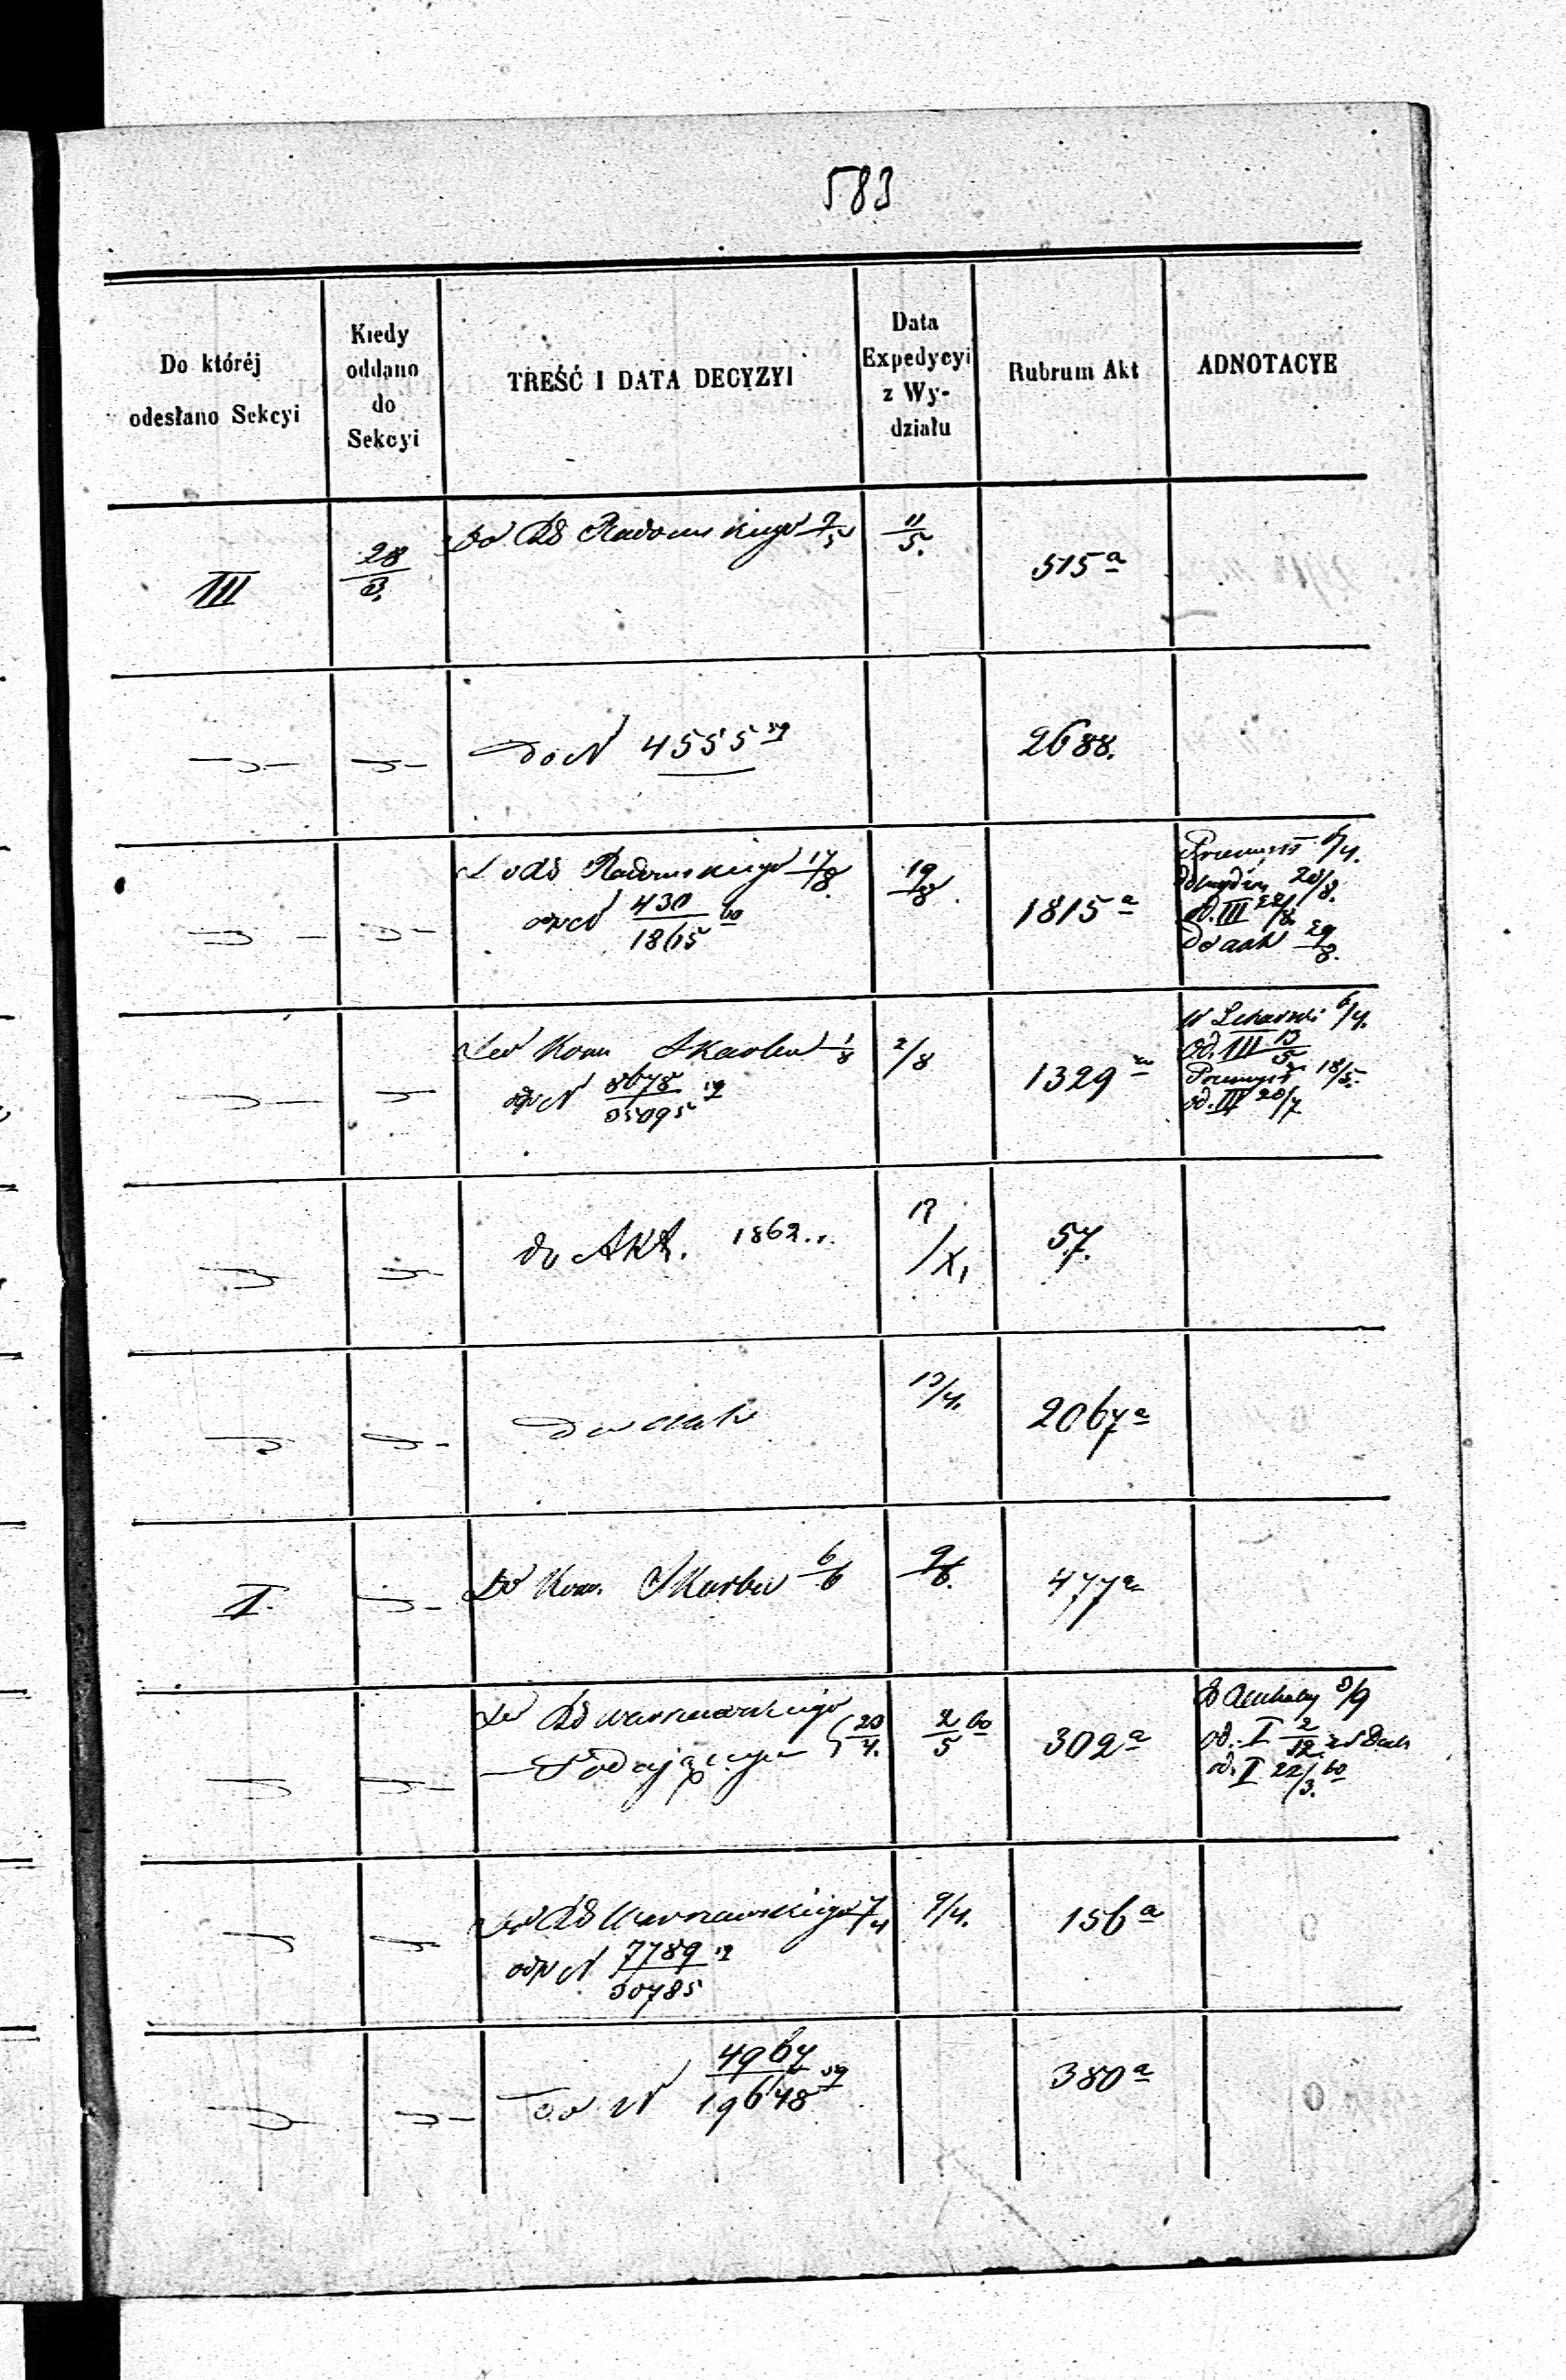 583
Do któréj
odesłano Sekcyi
Kiedy
oddano
do
Sekcyi
TREŚĆ I DATA DECYZYI
Data
Expedycyi
z Wy-
działu
Rubrum Akt
ADNOTACYE
III
28/3.
Do Rd Radomskiego 9/5
11/5.
515 a
do N 4555 59
2688.
Do Rd Radomskiego 17/8
19/8.
1815 a
odp N 430/1865 60
6/4.
20/8.
od. III 22/8.
do akt 29/8.
Do Kom Skarbu 1/8
2/8
1329 a
odp N 8678/35095 59
6/4.
od. III 13/5
18/5.
od. III 20/7
do Akt. 1862.
/XI
57.
do akt
13/4.
2067 a
I.
Do Kom. Skarbu 6/6
9/6.
477 a
Do Rd Warszawskiego
20/4.
2/5 60
302 a
3/9
od. I 2/12
od. I 22/3. 60
Do Rd Warszawskiego 7/4
9/4.
156 a
odp N 7789/30785 59
Do N 4967/19648 59
380 a